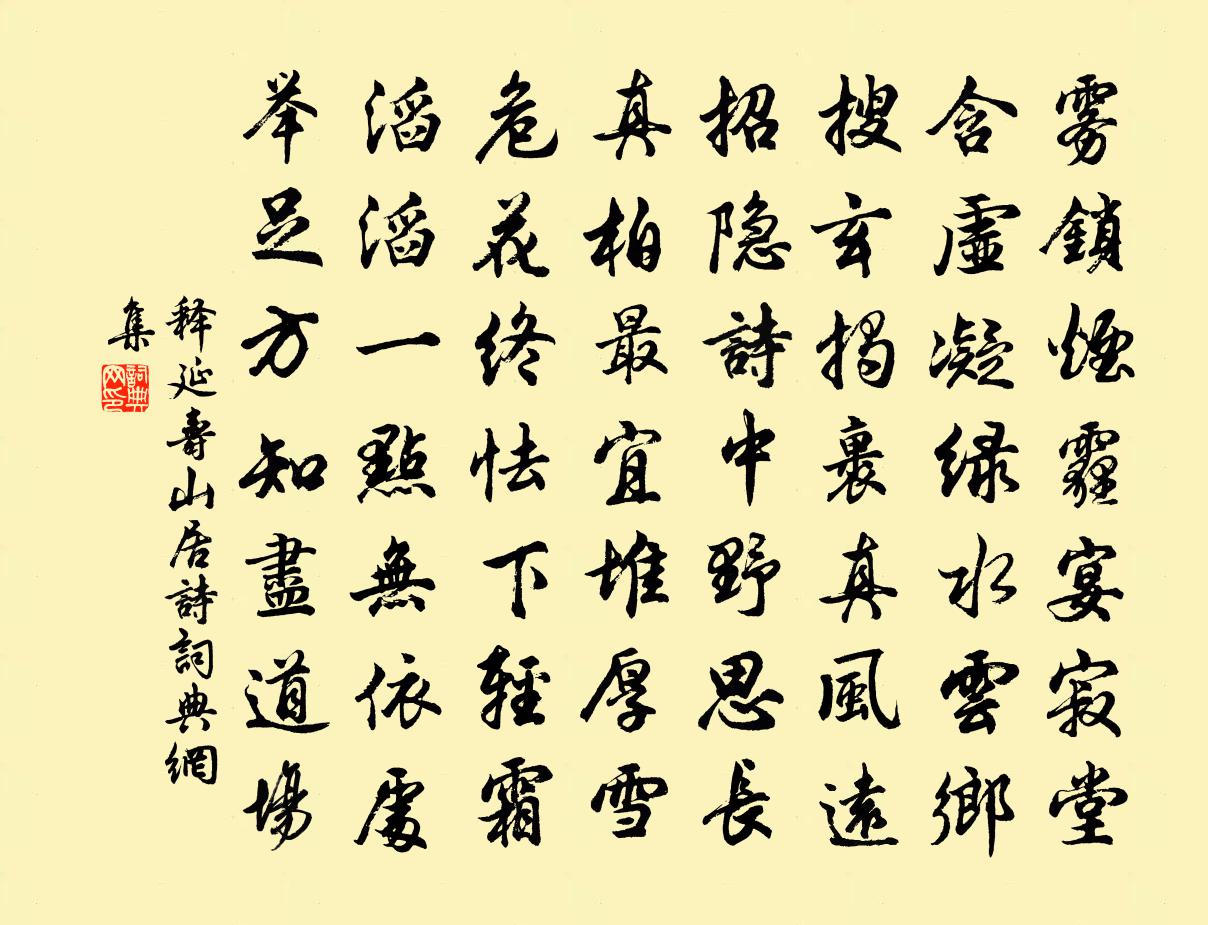 雾鎖煙霾宴寂堂
含虛凝绿水雲鄉
搜玄揭裏真風遠
招隐詩中野思長
真柏最宜堆厚雪
危花终怯下輕霜
滔滔一點無依處
举足方知盡道場
释延壽山居詩詞典網
集
詞典网印